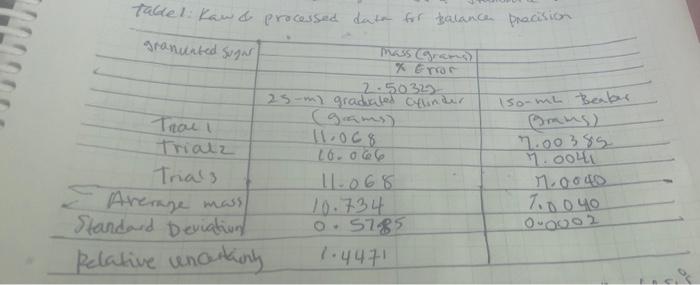 Table1: Raw & processed data for balance precision
granunted sugar
mass (grams)
% Error
25-ml graduated cylinder
150-mL Beaker
(grams)
(grams)
Trial 1
11.068
Trial 2
10.066
7.0041
Trial 3
11.068
7.0040
Average mass
10.734
7.0040
Standard Deviation
0.5785
0.0002
Relative uncertainty
1.4471